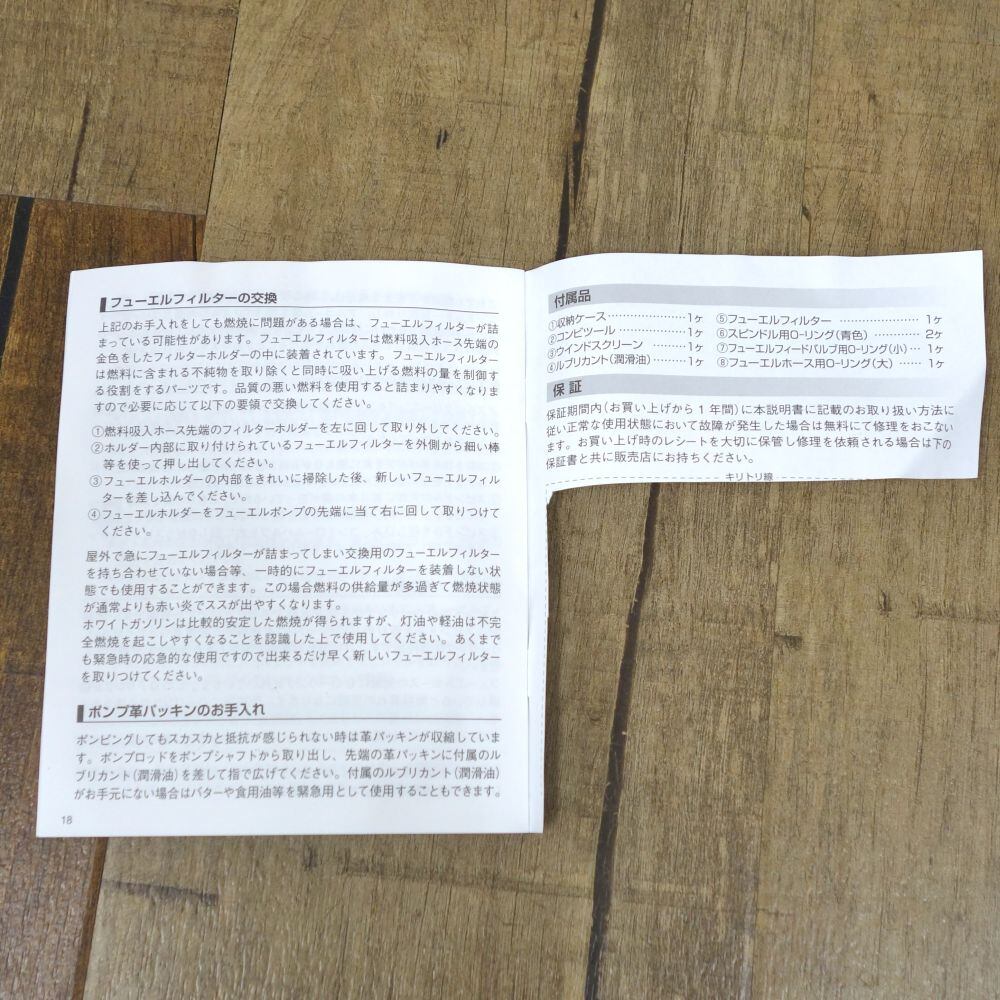 フューエルフィルターの交換
上記のお手入れをしても燃焼に問題がある場合は、フューエルフィルターが詰
まっている可能性があります。フューエルフィルターは燃料吸入ホース先端の
金色をしたフィルターホルダーの中に装着されています。フューエルフィルター
は燃料に含まれる不純物を取り除くと同時に吸い上げる燃料の量を制御す
る役割をするパーツです。品質の悪い燃料を使用すると詰まりやすくなりま
すので必要に応じて以下の要領で交換してください。
①燃料吸入ホース先端のフィルターホルダーを左に回して取り外してください。
②ホルダー内部に取り付けられているフューエルフィルターを外側から細い棒
等を使って押し出してください。
③フューエルホルダーの内部をきれいに掃除した後、新しいフューエルフィル
ターを差し込んでください。
④フューエルホルダーをフューエルポンプの先端に当て右に回して取りつけて
ください。
屋外で急にフューエルフィルターが詰まってしまい交換用のフューエルフィルター
を持ち合わせていない場合等、一時的にフューエルフィルターを装着しない状
態でも使用することができます。この場合燃料の供給量が多過ぎて燃焼状態
が通常よりも赤い炎でススが出やすくなります。
ホワイトガソリンは比較的安定した燃焼が得られますが、灯油や軽油は不完
全燃焼を起こしやすくなることを認識した上で使用してください。あくまで
も緊急時の応急的な使用ですので出来るだけ早く新しいフューエルフィルター
を取りつけてください。
ポンプ革パッキンのお手入れ
ポンピングしてもスカスカと抵抗が感じられない時は革パッキンが収縮していま
す。ポンプロッドをポンプシャフトから取り出し、先端の革パッキンに付属のル
ブリカント(潤滑油)を差して指で広げてください。付属のルブリカント(潤滑油)
がお手元にない場合はバターや食用油等を緊急用として使用することもできます。
18
付属品
①収納ケース……………………1ヶ
②コンビツール…………………1ヶ
③ウインドスクリーン…………1ヶ
④ルブリカント(潤滑油)………1ヶ
⑤フューエルフィルター……………………1ヶ
⑥スピンドル用O-リング(青色)…………2ヶ
⑦フューエルフィードバルブ用O-リング(小)…1ヶ
⑧フューエルホース用O-リング(大)……1ヶ
保 証
保証期間内(お買い上げから1年間)に本説明書に記載のお取り扱い方法に
従い正常な使用状態において故障が発生した場合は無料にて修理をおこない
ます。お買い上げ時のレシートを大切に保管し修理を依頼される場合は下の
保証書と共に販売店にお持ちください。
キリトリ線